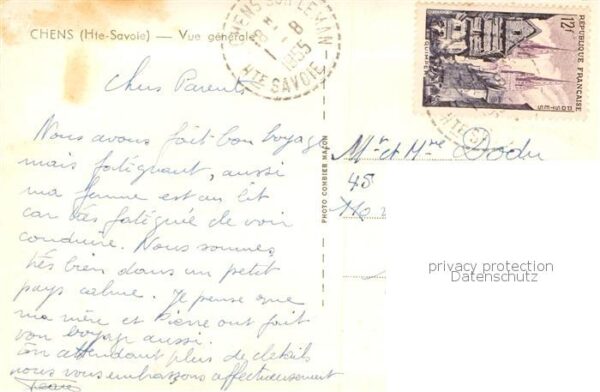 CHENS (Hte-Savoie) — Vue générale
CHENS SUR LEMAN
1 - 8
1955
HTE SAVOIE
12f
RÉPUBLIQUE FRANÇAISE
POSTES
QUIMPER
HTE S
Chers Parents
Nous avons fait bon voyage
mais fatiguant, aussi
ma femme est au lit
car très fatiguée de voir
conduire. Nous sommes
très bien dans un petit
pays calme. Je pense que
ma mère et Pierre ont fait
bon voyage aussi.
En attendant plus de details
nous vous embrassons affectueusement
PHOTO COMBIER MACON
Mr et Mme Dodu
45
privacy protection
Datenschutz